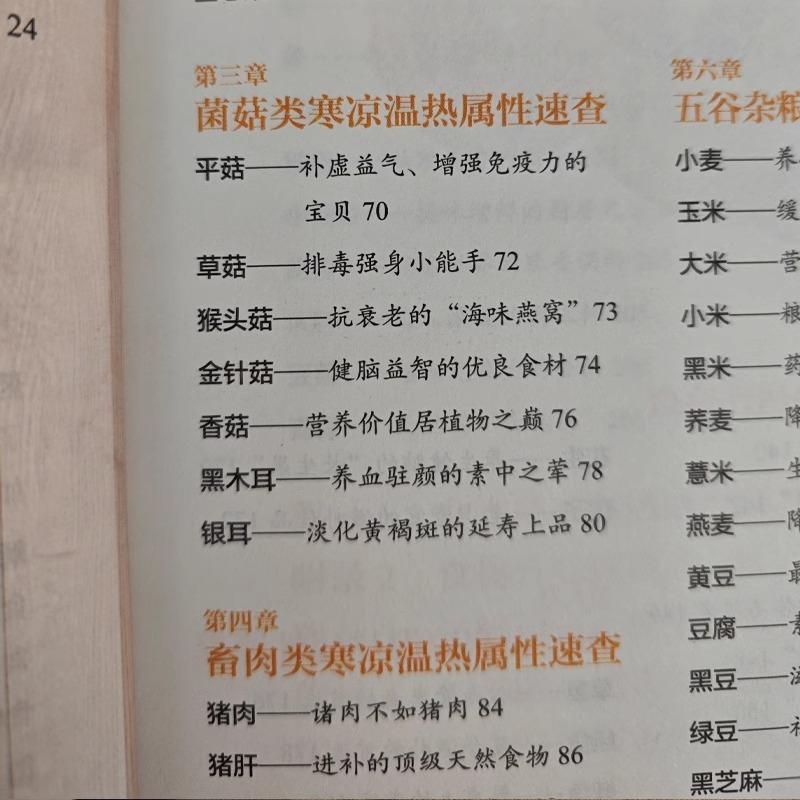 24
第三章
菌菇类寒凉温热属性速查
平菇——补虚益气、增强免疫力的
宝贝 70
草菇——排毒强身小能手 72
猴头菇——抗衰老的“海味燕窝” 73
金针菇——健脑益智的优良食材 74
香菇——营养价值居植物之巅 76
黑木耳——养血驻颜的素中之荤 78
银耳——淡化黄褐斑的延寿上品 80
第四章
畜肉类寒凉温热属性速查
猪肉——诸肉不如猪肉 84
猪肝——进补的顶级天然食物 86
第六章
五谷杂粮
小麦——养
玉米——缓
大米——营
小米——粮
黑米——药
荞麦——降
薏米——生
燕麦——降
黄豆——最
豆腐——素
黑豆——滋
绿豆——
黑芝麻——